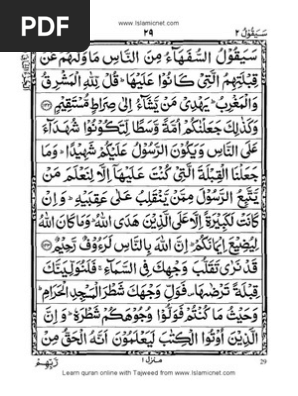 PDF
www.Islamicnet.com
سَيَقُولُ ٢
٢٩
سَيَقُولُ السُّفَهَآءُ مِنَ النَّاسِ مَا وَلّٰىهُمْ عَنْ
قِبْلَتِهِمُ الَّتِىْ كَانُوْا عَلَيْهَا ؕ قُلْ لِّلّٰهِ الْمَشْرِقُ
وَالْمَغْرِبُ ؕ يَهْدِىْ مَنْ يَّشَآءُ اِلٰى صِرَاطٍ مُّسْتَقِيْمٍ ﴿۱۴۲﴾
وَكَذٰلِكَ جَعَلْنٰكُمْ اُمَّةً وَّسَطًا لِّتَكُوْنُوْا شُهَدَآءَ
عَلَى النَّاسِ وَيَكُوْنَ الرَّسُوْلُ عَلَيْكُمْ شَهِيْدًا ؕ وَمَا
جَعَلْنَا الْقِبْلَةَ الَّتِىْ كُنْتَ عَلَيْهَآ اِلَّا لِنَعْلَمَ مَنْ
يَّتَّبِعُ الرَّسُوْلَ مِمَّنْ يَّنْقَلِبُ عَلٰى عَقِبَيْهِ ؕ وَاِنْ
كَانَتْ لَكَبِيْرَةً اِلَّا عَلَى الَّذِيْنَ هَدَى اللّٰهُ ؕ وَمَا كَانَ اللّٰهُ
لِيُضِيْعَ اِيْمَانَكُمْ ؕ اِنَّ اللّٰهَ بِالنَّاسِ لَرَءُوْفٌ رَّحِيْمٌ ﴿۱۴۳﴾
قَدْ نَرٰى تَقَلُّبَ وَجْهِكَ فِى السَّمَآءِ ۚ فَلَنُوَلِّيَنَّكَ
قِبْلَةً تَرْضٰىهَا ۪ فَوَلِّ وَجْهَكَ شَطْرَ الْمَسْجِدِ الْحَرَامِ ؕ
وَحَيْثُ مَا كُنْتُمْ فَوَلُّوْا وُجُوْهَكُمْ شَطْرَهٗ ؕ وَاِنَّ
الَّذِيْنَ اُوْتُوا الْكِتٰبَ لَيَعْلَمُوْنَ اَنَّهُ الْحَقُّ مِنْ
رَّبِّهِمْ
منزل ١
29
Learn quran online with Tajweed from www.Islamicnet.com